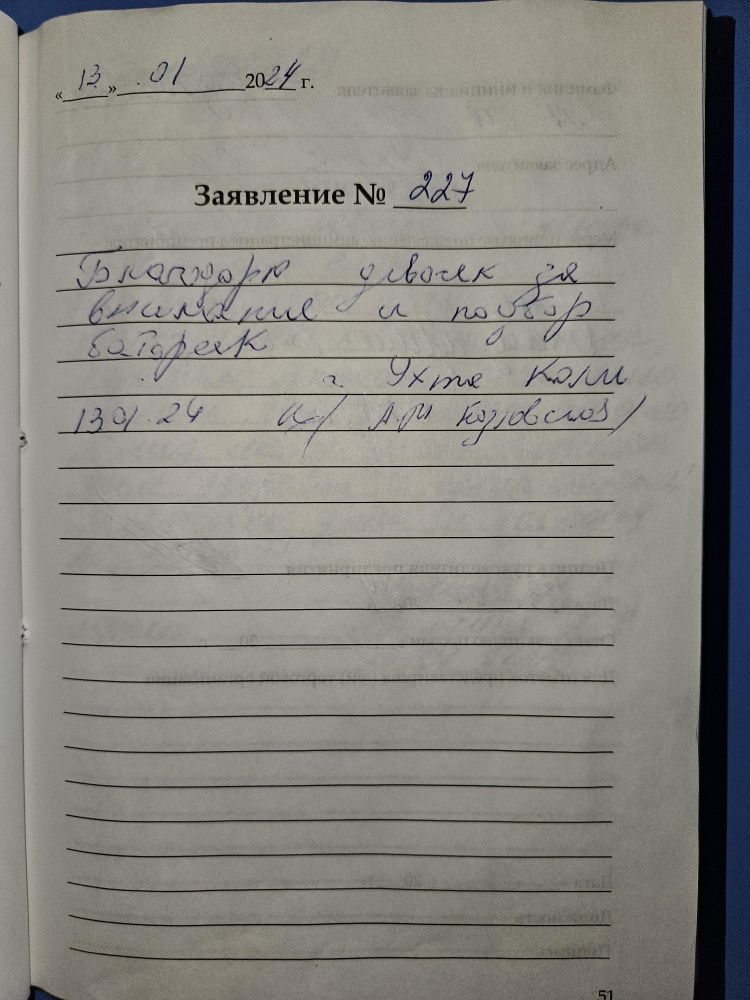 «13» .01 2024 г.
Заявление № 227
Благодарю девочек за
внимание и подбор
батареек
г. Ухта Коми
13 01.24 /А.М Козловский/
51